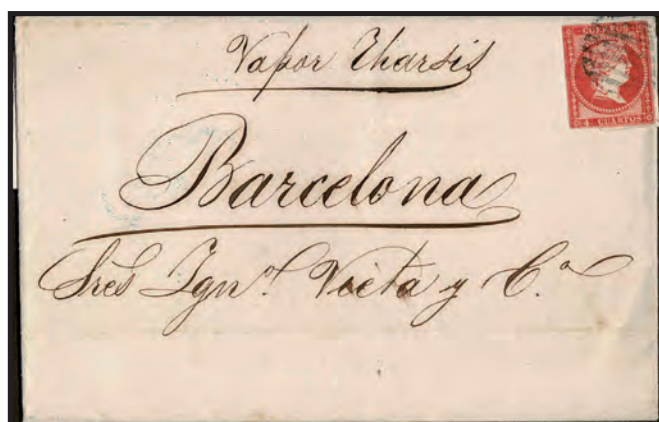 Vapor Tharsis
Barcelona
Sres Ign.º Vieta y C.ª
CUARTOS